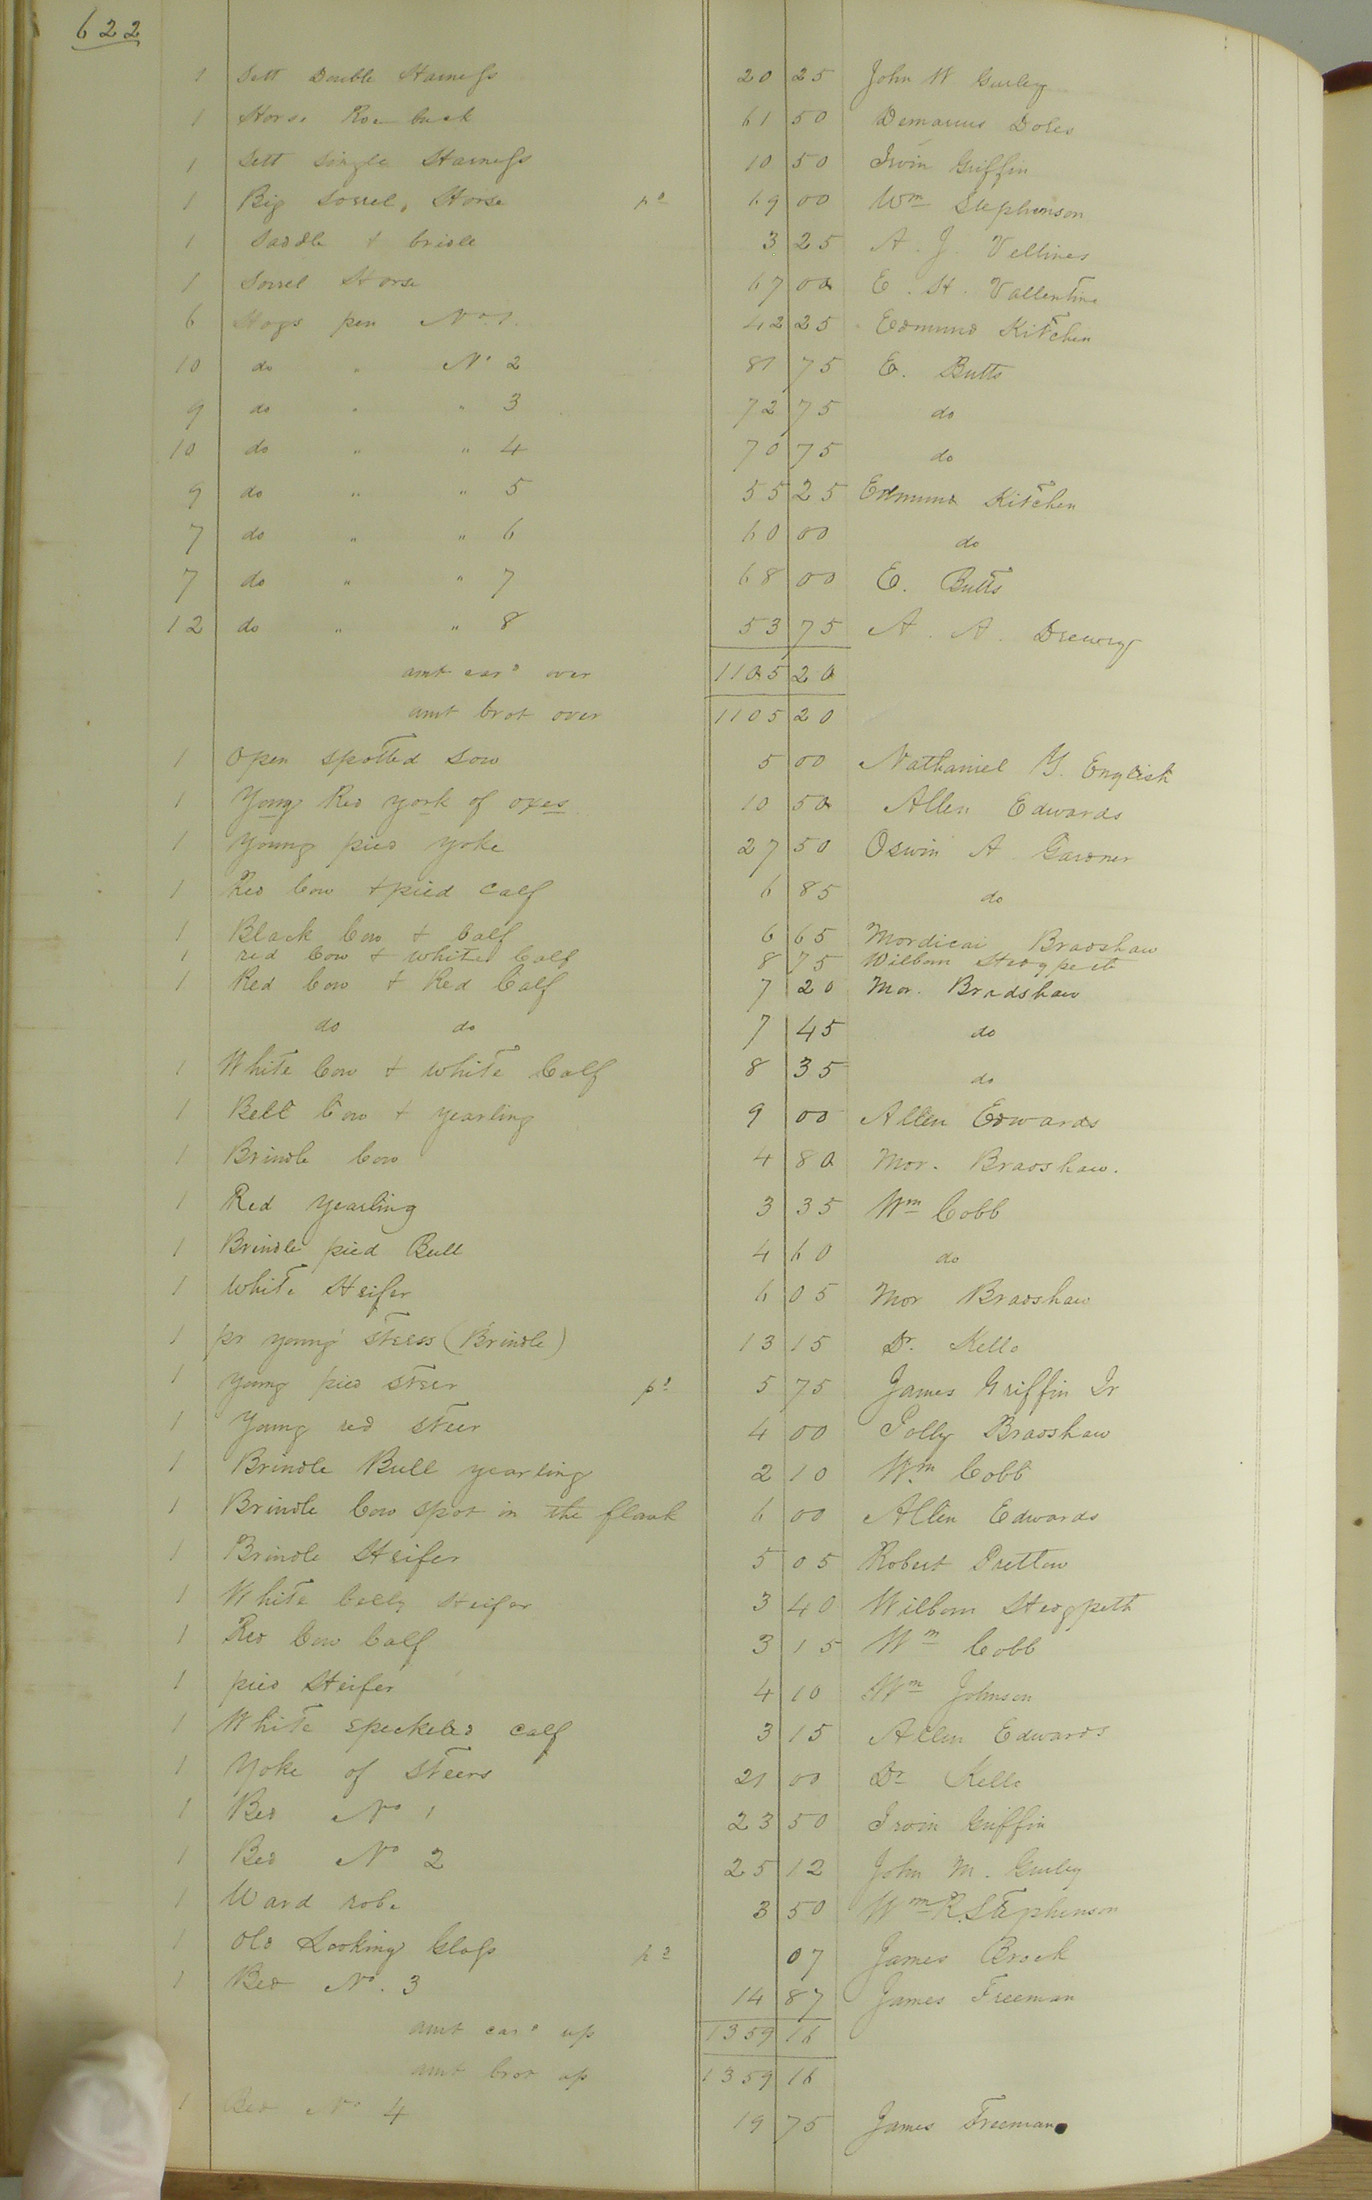 622
1 Sett Double Harness 20 25 John W Gurley
1 Horse Roe buck 61 50 Demarcus Doles
1 Sett Single Harness 10 50 Irvin Griffin
1 Big Sorrel, Horse pd 69 00 Wm Stephenson
1 Saddle & bridle 3 25 A. J. Vellines
1 Sorrel Horse 67 00 E. H. Vallentine
6 Hogs pen No 1 42 25 Edmund Kitchen
10 do " No 2 81 75 E. Butts
9 do " " 3 72 75 do
10 do " " 4 70 75 do
9 do " " 5 55 25 Edmund Kitchen
7 do " " 6 60 00 do
7 do " " 7 68 00 E. Butts
12 do " " 8 53 75 A. A. Drewry
amt card over 1105 20
amt brot over 1105 20
1 Open spotted Sow 5 00 Nathaniel Y. English
1 Yong Red york of oxes 10 50 Allen Edwards
1 Young pied Yoke 27 50 Oswin A Gardner
1 Red Cow & pied Calf 6 85 do
1 Black Cow & Calf 6 65 Mordicai Bradshaw
1 red Cow & white Calf 8 75 Wilborn Hedgpeth
1 Red Cow & Red Calf 7 20 Mor. Bradshaw
do do 7 45 do
1 White Cow & white Calf 8 35 do
1 Bell Cow & yearling 9 00 Allen Edwards
1 Brindle Cow 4 80 Mor. Bradshaw.
1 Red Yearling 3 35 Wm Cobb
1 Brindle pied Bull 4 60 do
1 White Heifer 6 05 Mor Bradshaw
1 pr young Steers (Brindle) 13 15 Dr. Kello
1 Young pied Steer pd 5 75 James Griffin Jr
1 Young red Steer 4 00 Polly Bradshaw
1 Brindle Bull yearling 2 10 Wm Cobb
1 Brindle Cow spot in the flank 6 00 Allen Edwards
1 Brindle Heifer 5 05 Robert Pretlow
1 White belly Heifer 3 40 Wilborn Hedgpeth
1 Red Cow Calf 3 15 Wm Cobb
1 pied Heifer 4 10 Wm Johnson
1 White speckeled calf 3 15 Allen Edwards
1 Yoke of Steers 21 00 Dr Kello
1 Bed No 1 23 50 Irvin Griffin
1 Bed No 2 25 12 John M. Gurley
1 Ward robe 3 50 Wm R. Stephenson
1 Old Looking Glass pd 07 James Brock
1 Bed No. 3 14 87 James Freeman
amt card up 1359 16
amt brot up 1359 16
1 Bed No 4 19 75 James Freeman